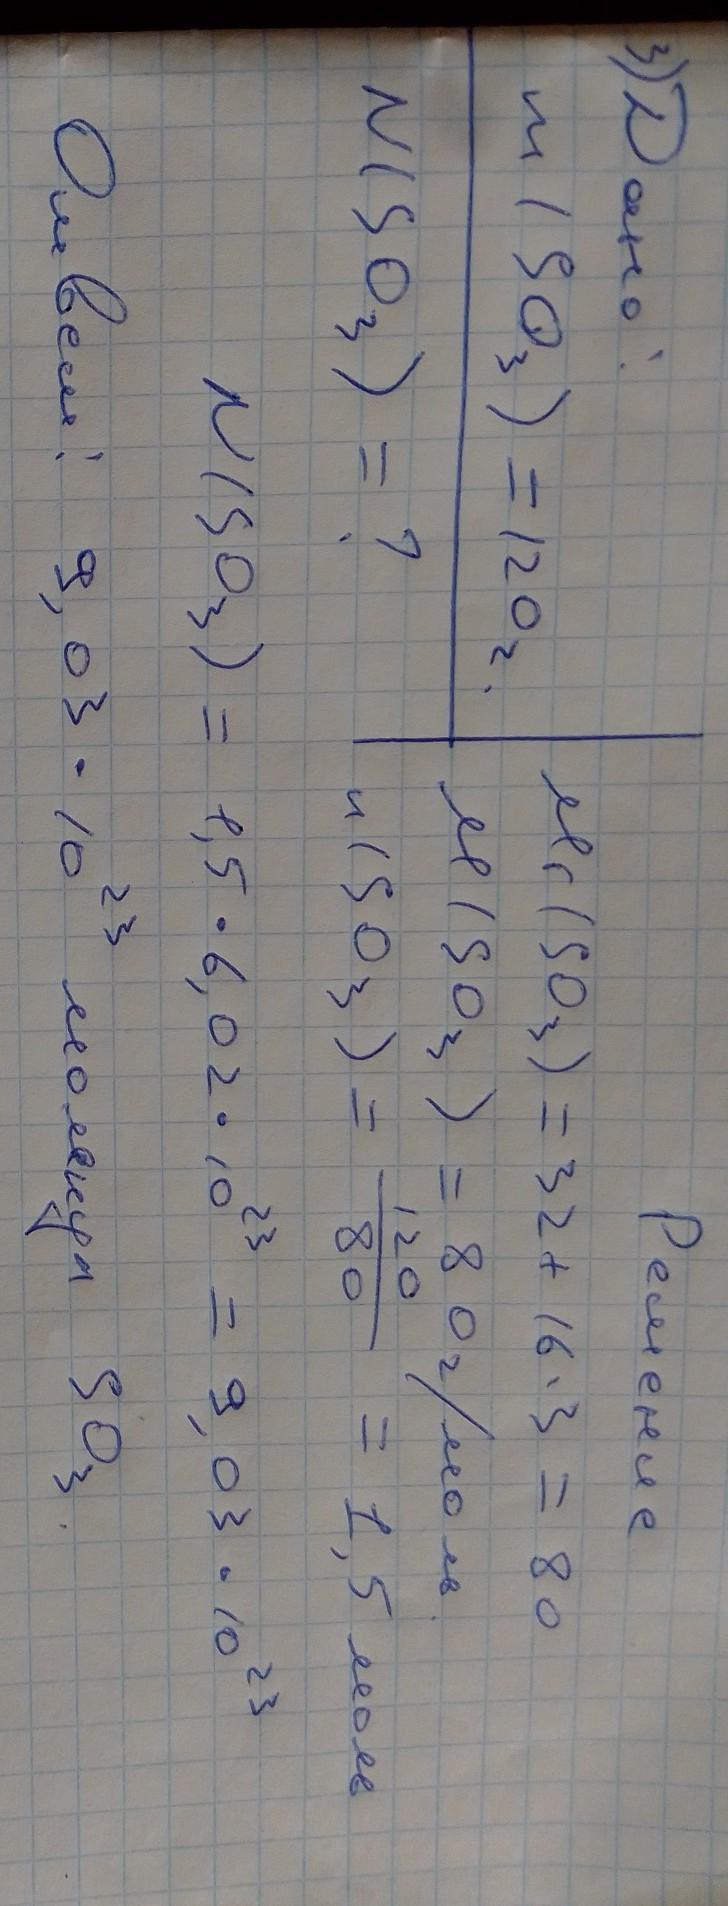 3) Дано:
m(SO₃) = 120г.
N(SO₃) = ?
Решение
Mr(SO₃) = 32 + 16·3 = 80
M(SO₃) = 80г/моль.
n(SO₃) = 120/80 = 1,5 моль
N(SO₃) = 1,5 · 6,02 · 10²³ = 9,03 · 10²³
Ответ: 9,03 · 10²³ молекул SO₃.